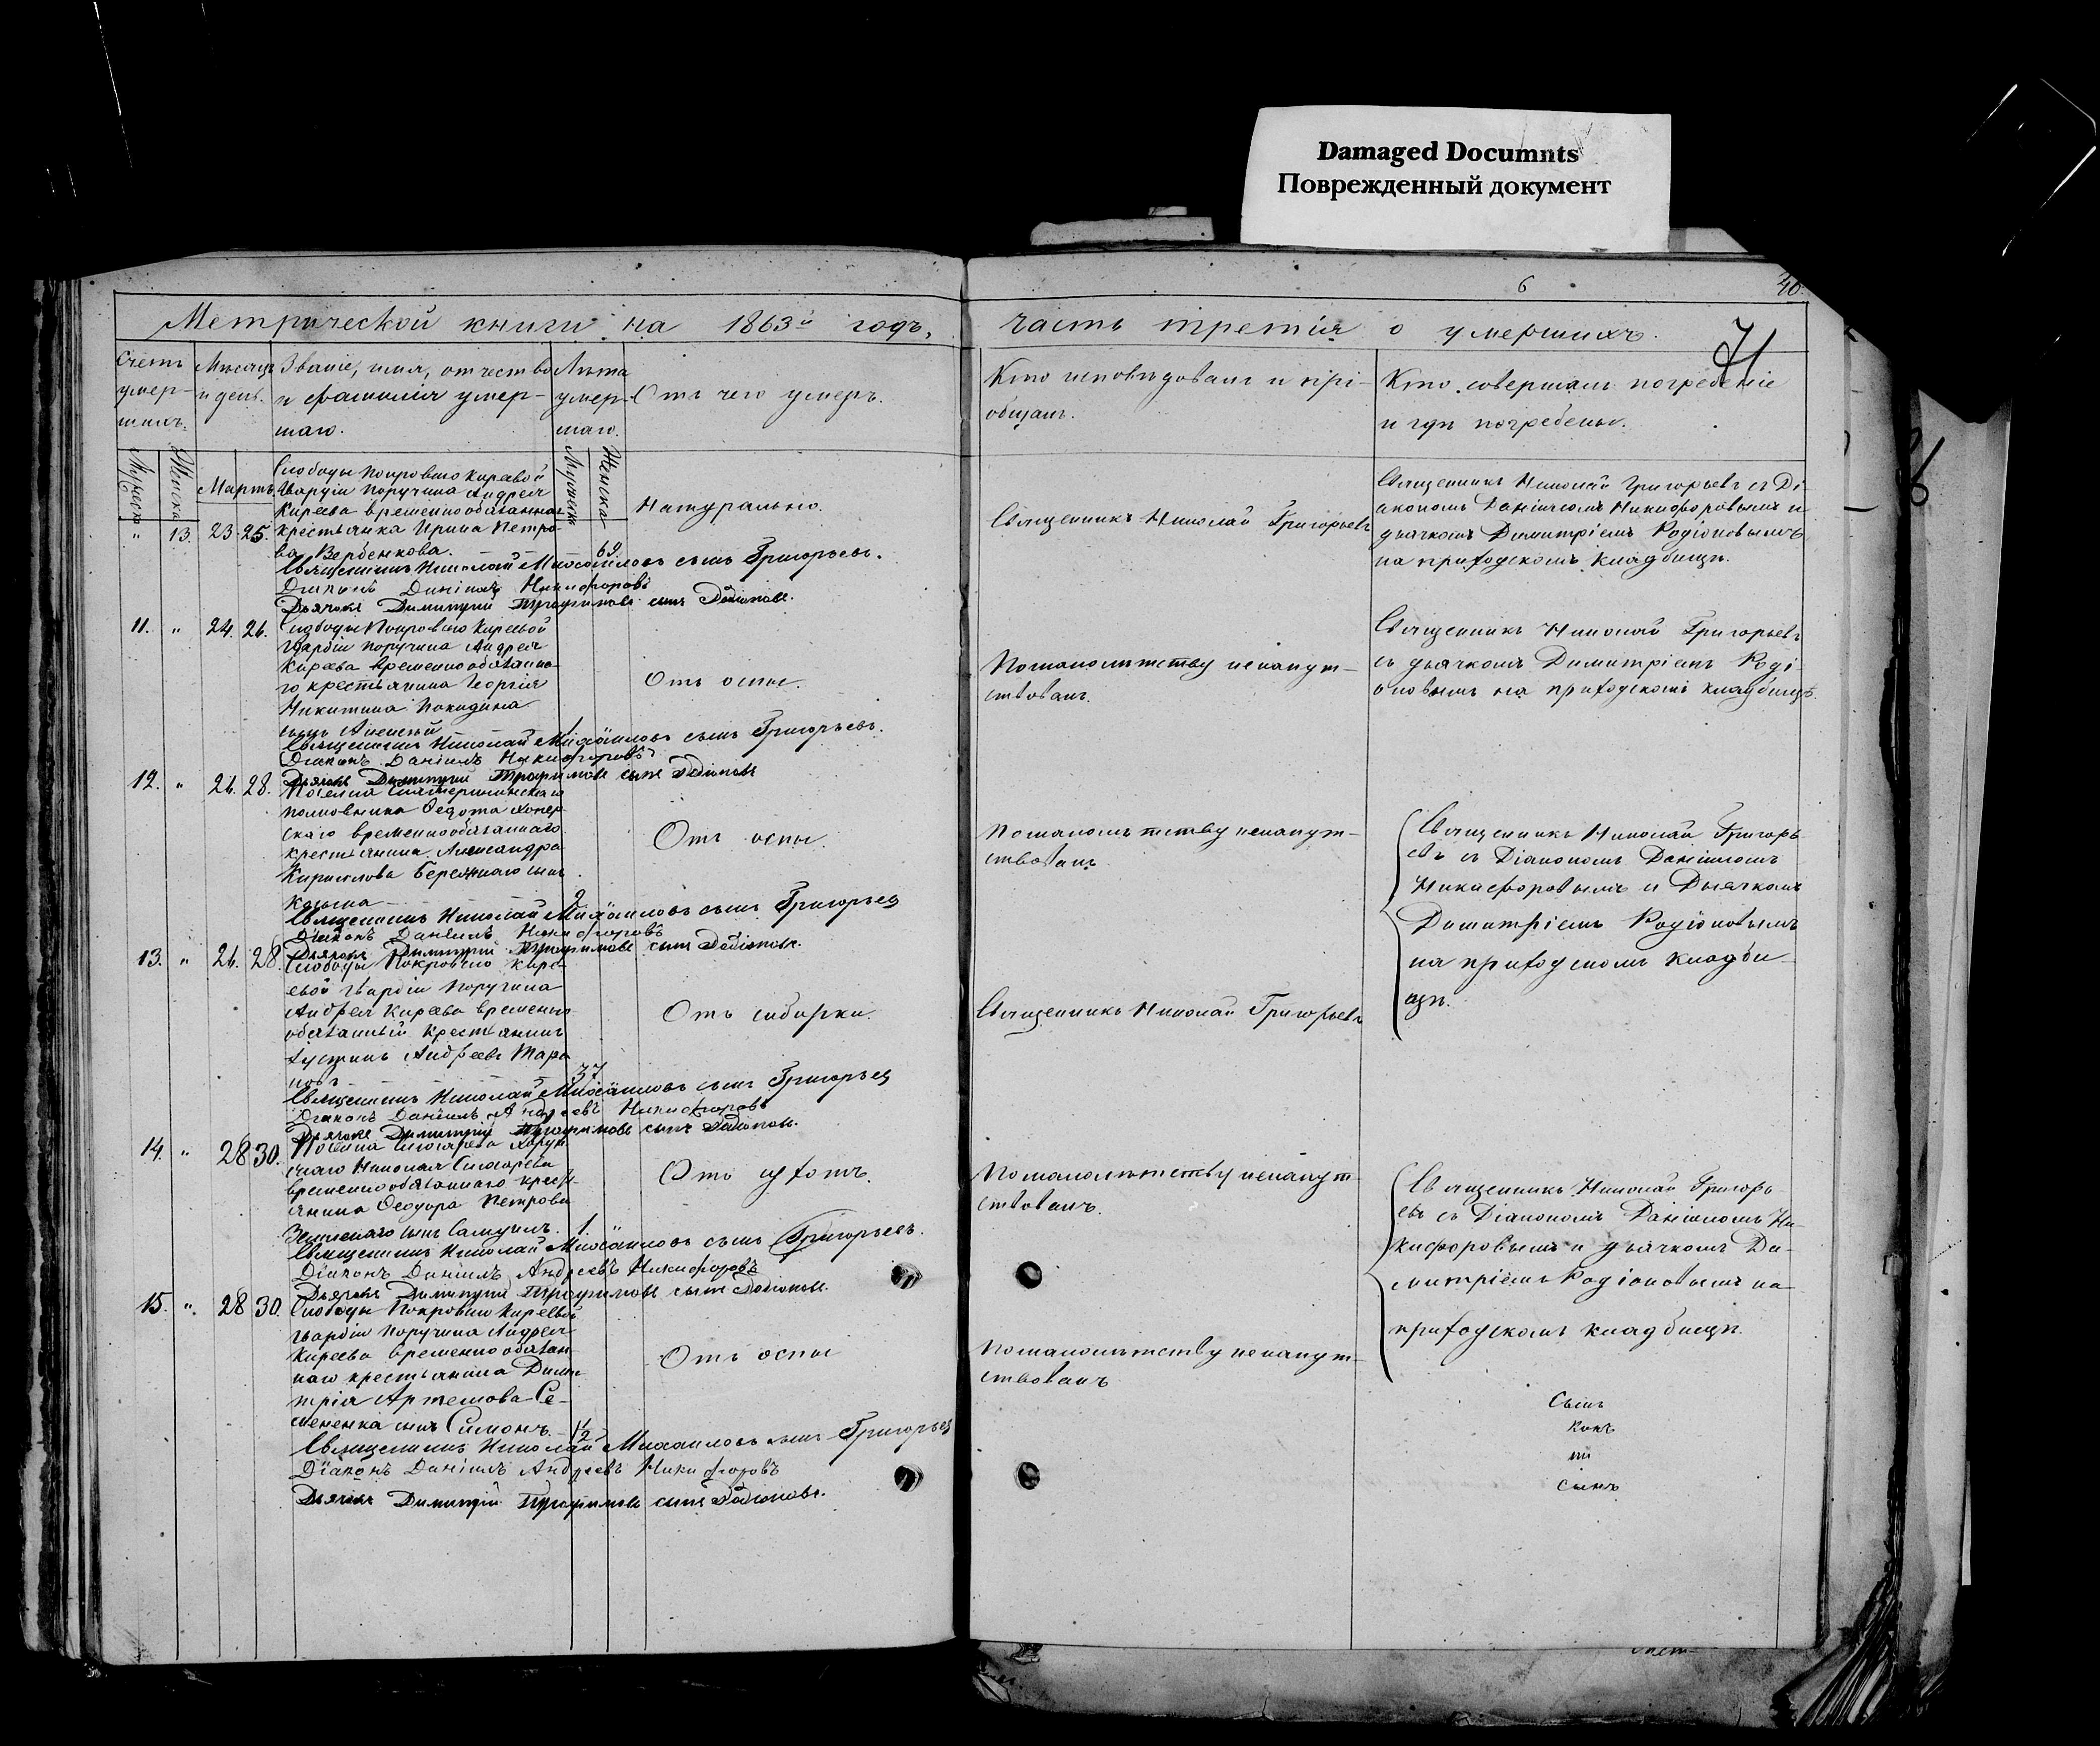 Damaged Documnts
Поврежденный документ
6
40
Метрической книги на 1863й годъ,
часть третія о умершихъ.
71
Счетъ умер-шихъ.
Мѣсяцъ и день.
Званіе, имя, отчество и фамилія умер-шаго.
Лѣта умер-шаго.
Отъ чего умеръ.
Кто исповѣдовалъ и прі-
общалъ.
Кто совершалъ погребеніе
и гдѣ погребены.
Мужеска
Женска
Мартъ
Мужеска
Женска
Слободы Покровско Киреевой
Гвардіи Поручика Андрея
Киреева временнообязанная
" 13. 23 25. крестьянка Ирина Петро-
ва Вербенкова. 69
Натурально.
Священникъ Николай Григорьевъ
Священникъ Николай Григорьевъ съ Ді-
акономъ Даніиломъ Никифоровымъ и
дьячкомъ Димитріемъ Родіоновымъ
на приходскомъ кладбищѣ.
Священникъ Николай Михайловъ сынъ Григорьевъ.
Діаконъ Даніилъ Никифоровъ
Дьячокъ Димитрій Трофимовъ сынъ Родіоновъ.
11. " 24. 26. Слободы Покровско Киреевой
Гвардіи Поручика Андрея
Киреева временнообязанна-
го крестьянина Георгія
Никитина Покидина
сынъ Алексей 1
Отъ оспы.
Помалолѣтству ненапут-
ствованъ.
Священникъ Николай Григорьевъ
съ дьячкомъ Димитріемъ Роді-
оновымъ на приходскомъ кладбищѣ.
Священникъ Николай Михайловъ сынъ Григорьевъ.
Діаконъ Даніилъ Никифоровъ
Дьячокъ Димитрій Трофимовъ сынъ Родіоновъ
12. " 26. 28. Поселка Екатерининскаго
полковника Федота Хопер-
скаго временнообязаннаго
крестьянина Александра
Кириллова Бережнаго сынъ
Козьма 2
Отъ оспы.
Помалолѣтству ненапут-
ствованъ
Священникъ Николай Григорь-
евъ съ Діакономъ Даніиломъ
Никифоровымъ и Дьячкомъ
Димитріемъ Родіоновымъ
на приходскомъ кладби-
щѣ.
Священникъ Николай Михайловъ сынъ Григорьев
Діаконъ Даніилъ Никифоровъ
Дьячокъ Димитрій Трофимовъ сынъ Родіоновъ.
13. " 26. 28. Слободы Покровско Кире-
евой Гвардіи Поручика
Андрея Киреева временно-
обязанный крестьянинъ
Андреевъ Тара
новъ 37
Отъ сибирки.
Священникъ Николай Григорьевъ
Священникъ Николай Михайловъ сынъ Григорьев
Діаконъ Даніилъ Андреевъ Никифоровъ
Дьячокъ Димитрій Трофимовъ сынъ Родіоновъ.
14. " 28 30. Поселка Слюсарева Хорун-
жаго Николая Слюсарева
временнообязаннаго кресть-
янина Феодора Петрова
сынъ Самуилъ. 1.
Помалолѣтству ненапут-
ствованъ.
Священникъ Николай Григорь-
евъ съ Діакономъ Даніиломъ Ни-
кифоровымъ и дьячкомъ Ди-
митріемъ Родіоновымъ на
приходскомъ кладбищѣ.
Священникъ Николай Михайловъ сынъ Григорьевъ.
Діаконъ Даніилъ Андреевъ Никифоровъ
Дьячокъ Димитрій Трофимовъ сынъ Родіоновъ.
15. ". 28 30. Слободы Покровско Киреевой
Гвардіи Поручика Андрея
Киреева временнообязан-
наго крестьянина Дими-
трія Артемова Се-
мененка сынъ Симонъ. 1/2
Отъ оспы
Помалолѣтству ненапут-
ствованъ
Священникъ Николай Михайловъ сынъ Григорьев
Діаконъ Даніилъ Андреевъ Никифоровъ
Дьячокъ Димитрій Трофимовъ сынъ Родіоновъ.
Сынъ
сынъ